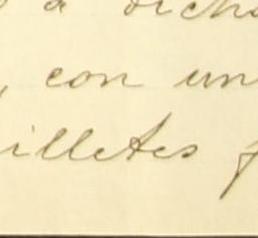 a dicho
, con un
illetes f